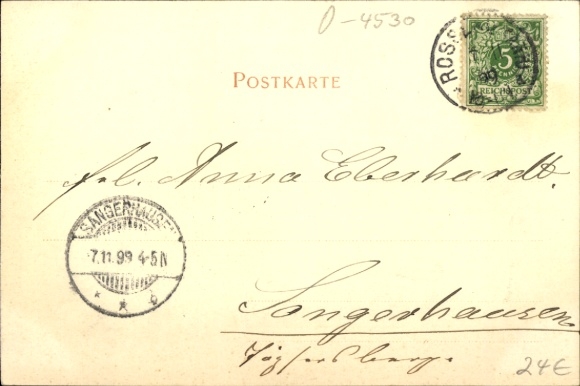 O-4530
5
REICHSPOST
POSTKARTE
Frl. Anna Eberhardt.
SANGERHAUSEN
7.11.99 4-5N
* * b
Sangerhausen
24€